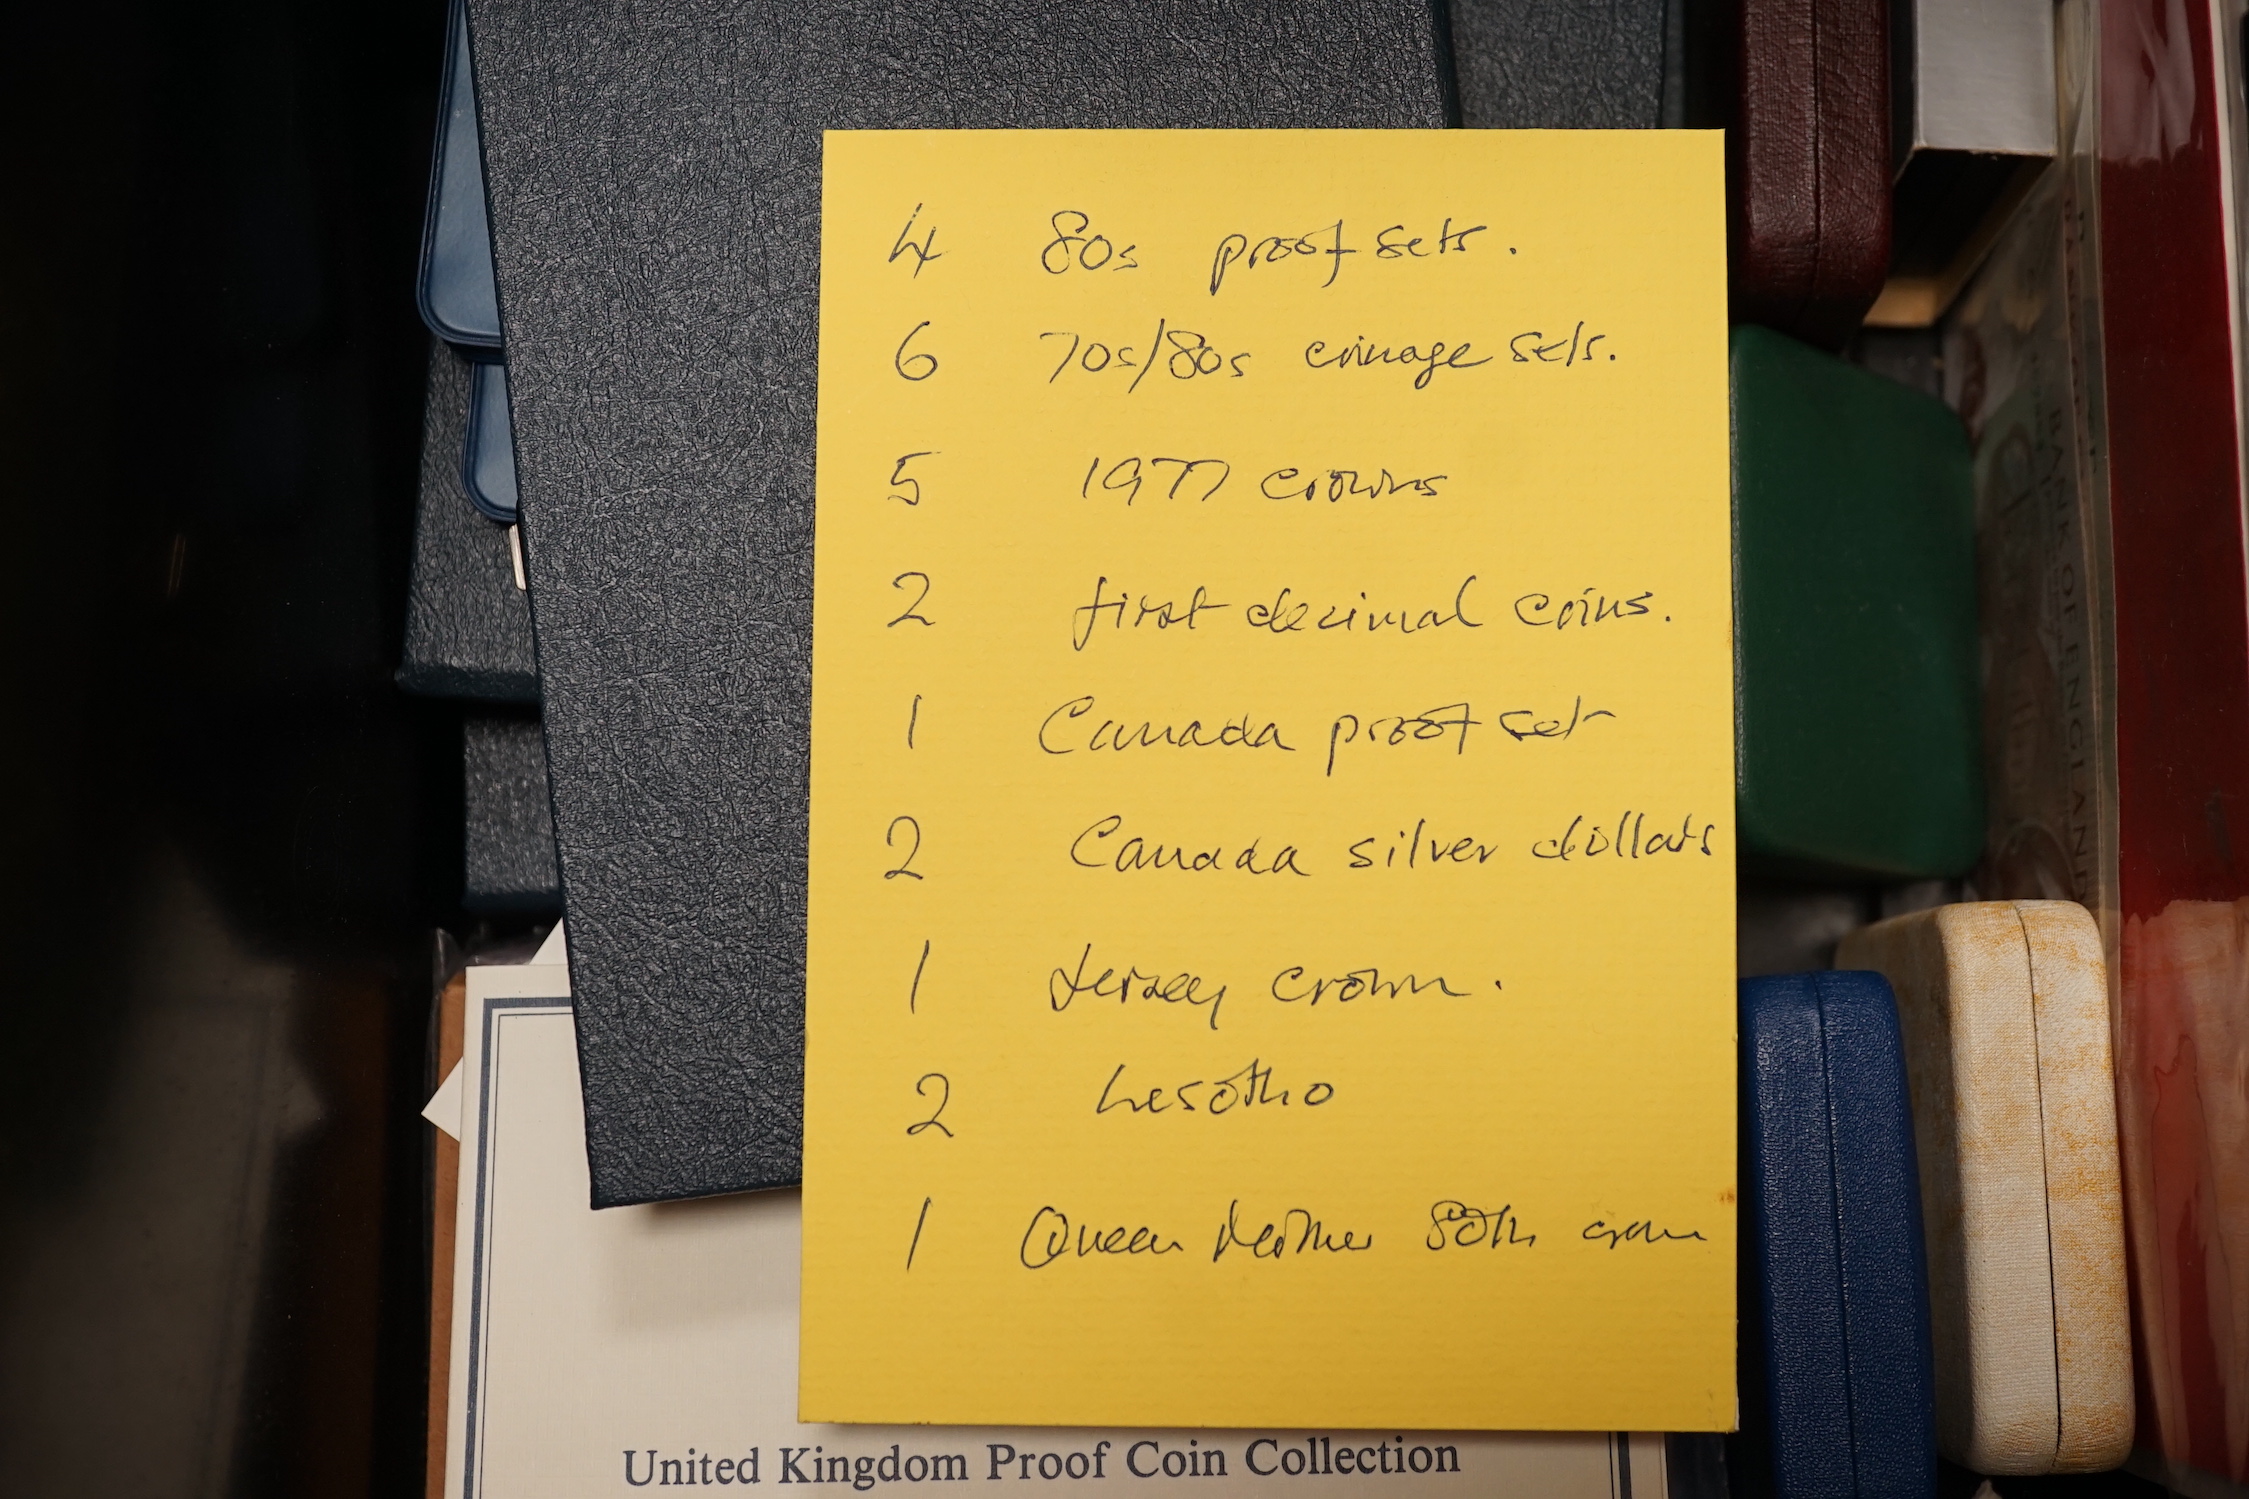 4 80s proof sets.
6 70s/80s coinage sets.
5 1977 crowns
2 first decimal coins.
1 Canada proof set
2 Canada silver dollars
1 Jersey crown.
2 Lesotho
1 Queen Mother 80th crown
United Kingdom Proof Coin Collection
BANK OF ENGLAND